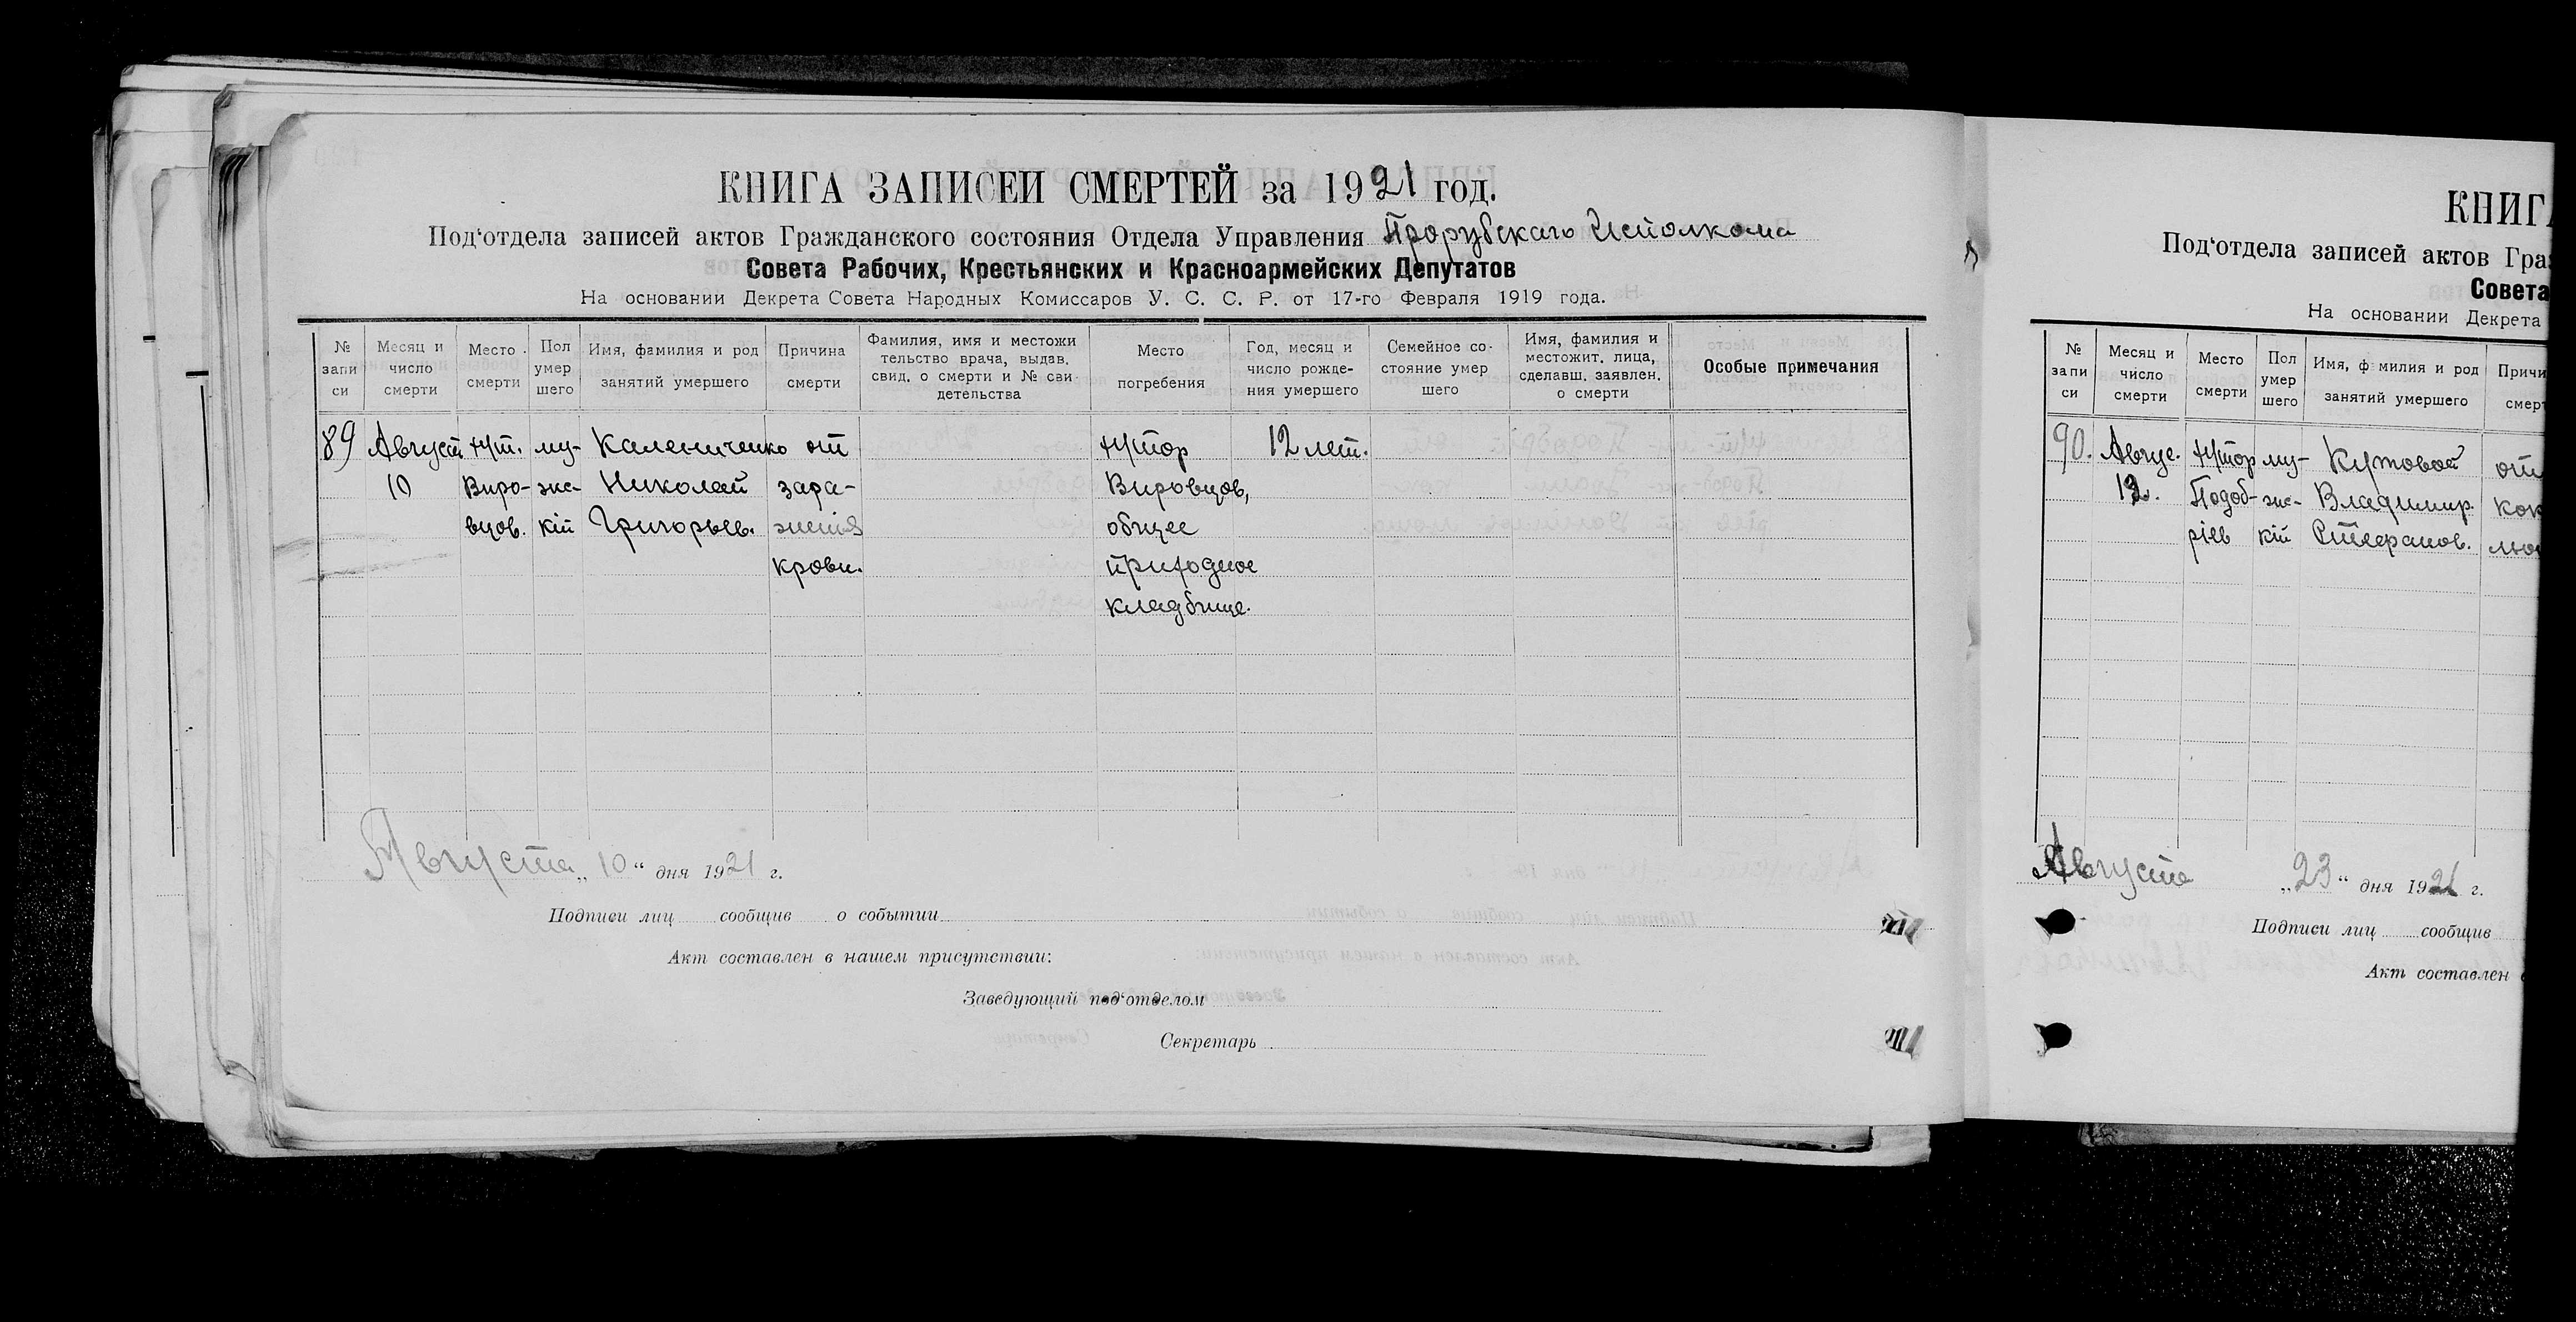 КНИГА ЗАПИСЕЙ СМЕРТЕЙ за 1921 год.
Под'отдела записей актов Гражданского состояния Отдела Управления Прорубскаго Исполкома
Совета Рабочих, Крестьянских и Красноармейских Депутатов
На основании Декрета Совета Народных Комиссаров У. С. С. Р. от 17-го Февраля 1919 года.
№ запи си
Месяц и число смерти
Место смерти
Пол умер шего
Имя, фамилия и род занятий умершего
Причина смерти
Фамилия, имя и местожи тельство врача, выдав. свид. о смерти и № сви детельства
Место погребения
Год, месяц и число рожде- ния умершего
Семейное со- стояние умер шего
Имя, фамилия и местожит. лица, сделавш. заявлен. о смерти
Особые примечания
89 Август хут. му- Калениченко от хутор 12 лет.
10 Виро- жс- Николай зара- Вировцов,
вцов. кій Григорьев. жения общее
крови. приходное
кладбище.
Августа „10“ дня 1921 г.
Подписи лиц сообщив о событии
Акт составлен в нашем присутствии:
Заведующий под'отделом
Секретарь
КНИГА
Под'отдела записей актов Гра
Совета
На основании Декрета
№ запи си
Месяц и число смерти
Место смерти
Пол умер шего
Имя, фамилия и род занятий умершего
Причи смерт
90. Авгус. хутор му- Кутовой от
12. Подоб- жс- Владимир. кок
ріев кій Стефанов. люш
Августа „23“ дня 1921 г.
Подписи лиц сообщив
Акт составлен